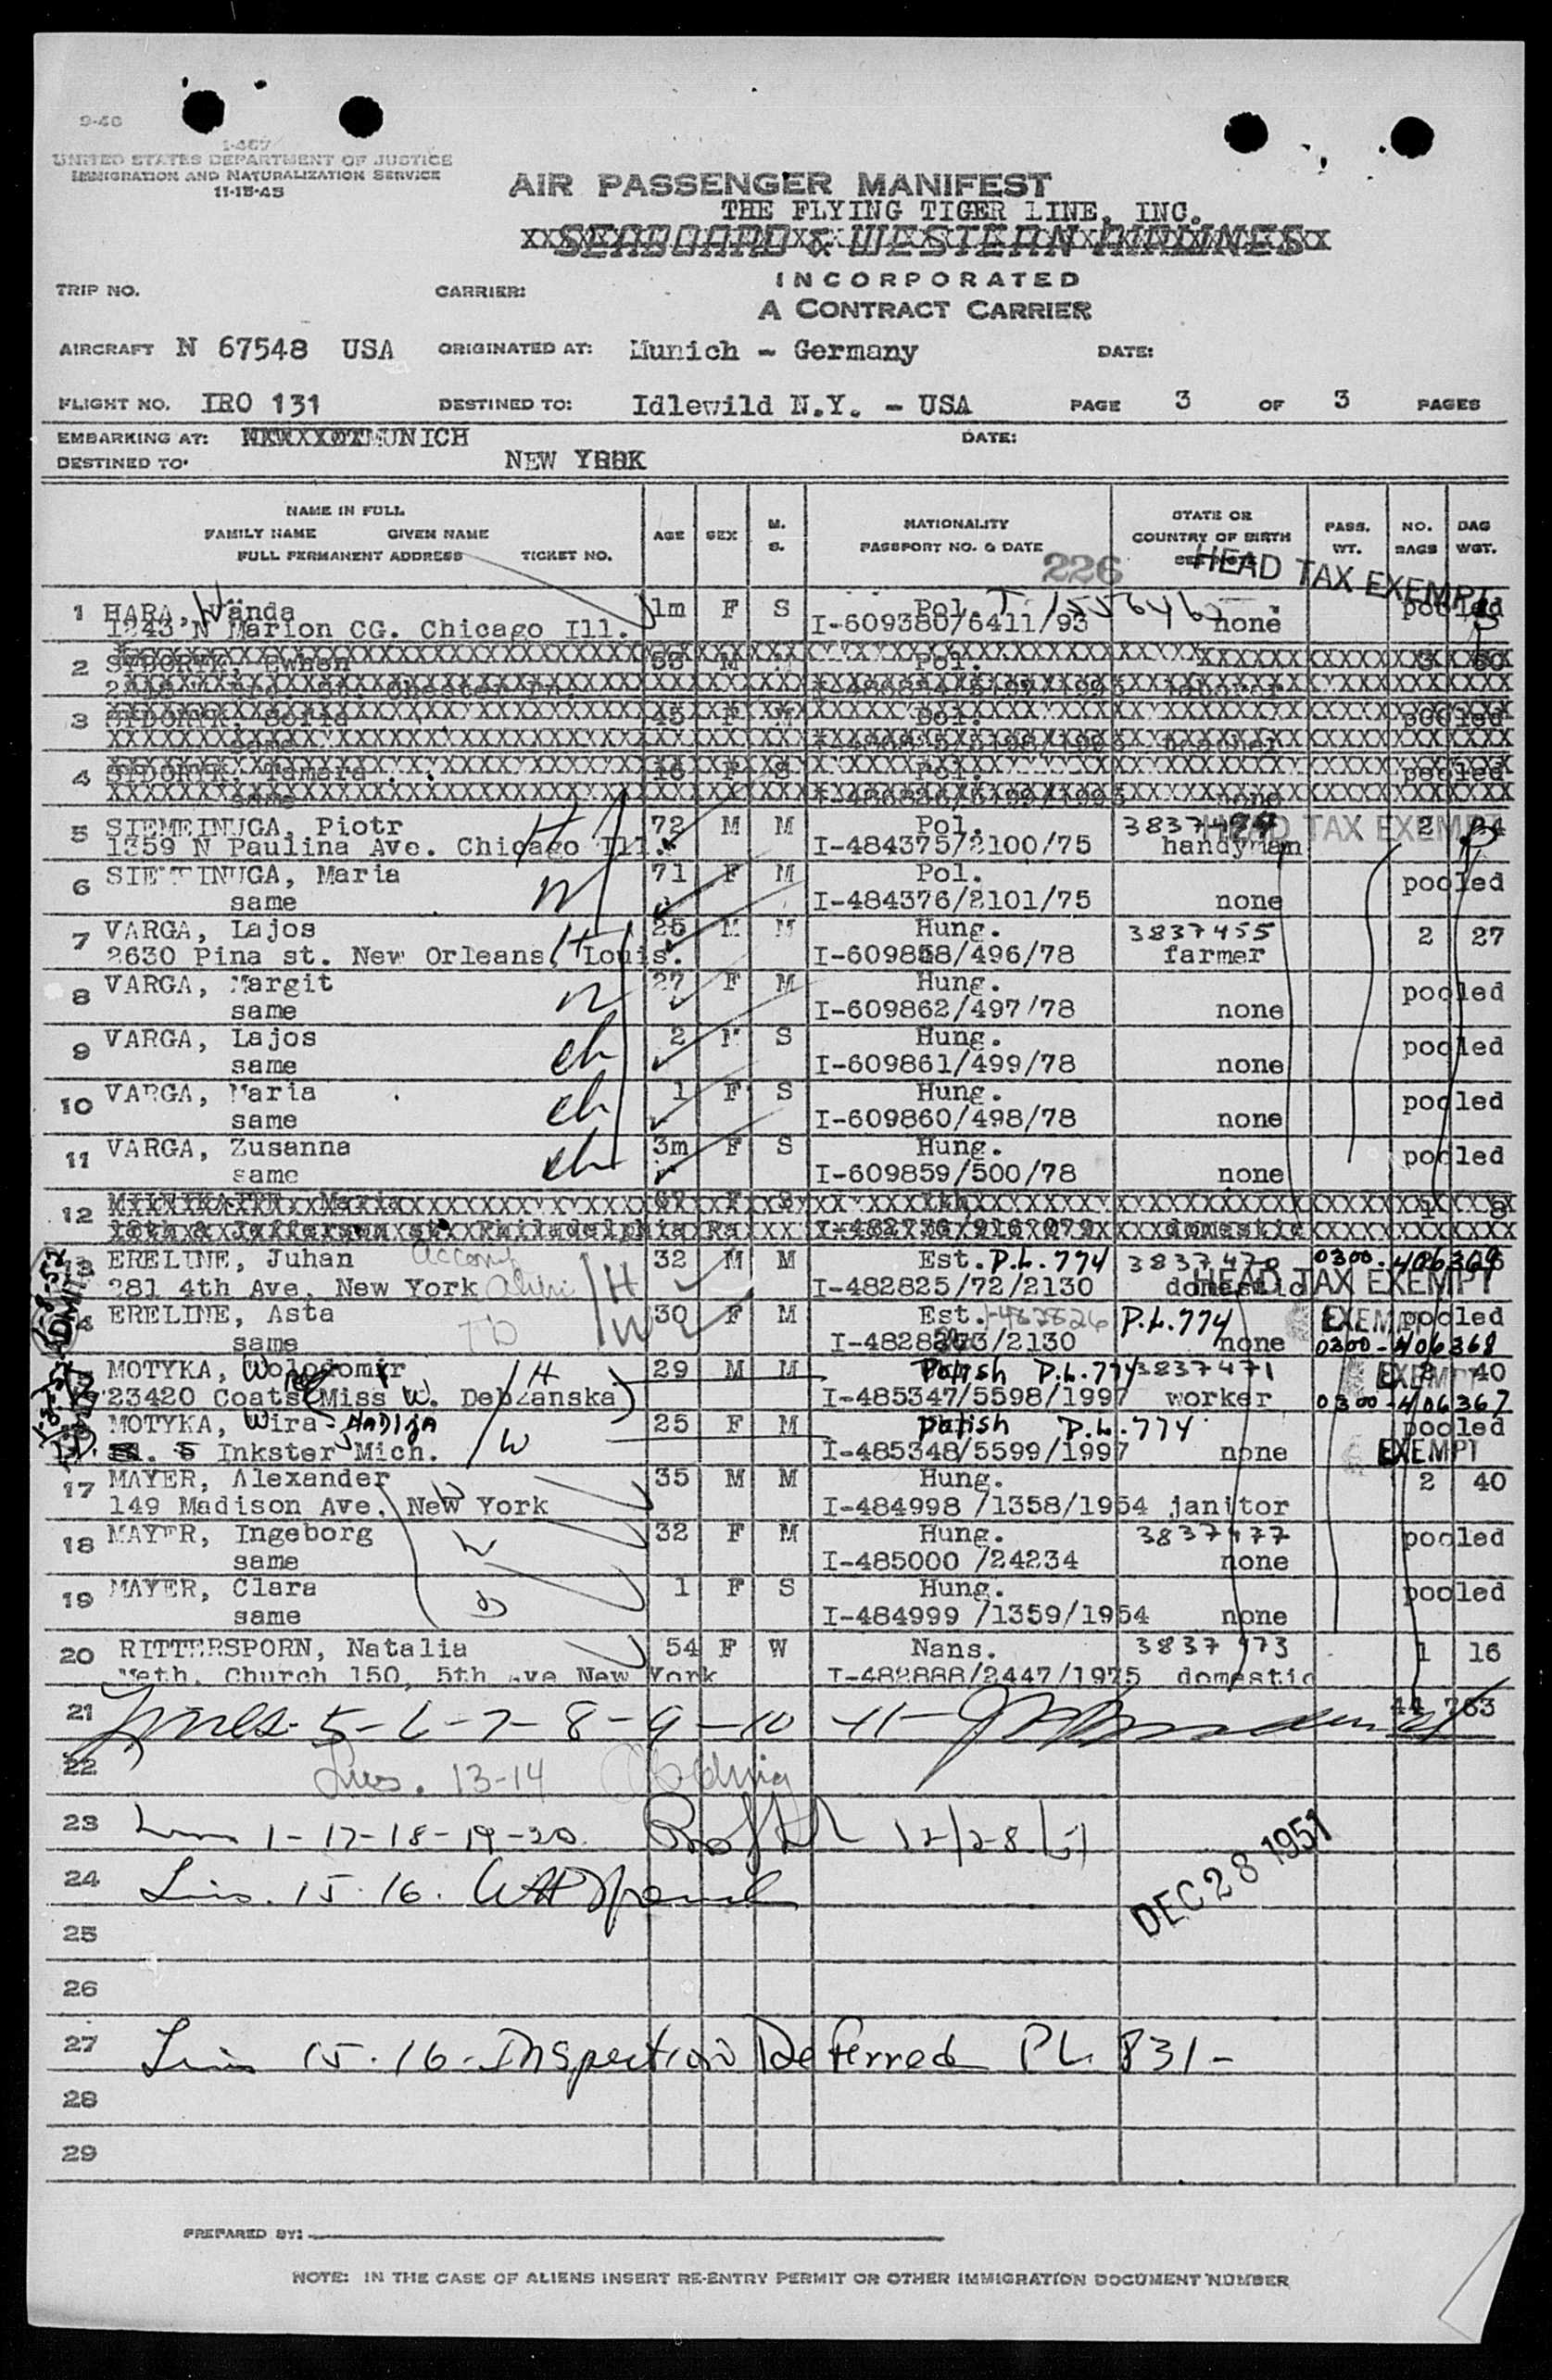 9-46
I-467
UNITED STATES DEPARTMENT OF JUSTICE
IMMIGRATION AND NATURALIZATION SERVICE
11-15-45
AIR PASSENGER MANIFEST
THE FLYING TIGER LINE, INC.
SEABOARD & WESTERN AIRLINES
INCORPORATED
A CONTRACT CARRIER
TRIP NO. CARRIER:
AIRCRAFT N 67548 USA ORIGINATED AT: Munich - Germany DATE:
FLIGHT NO. IRO 131 DESTINED TO: Idlewild N.Y. - USA PAGE 3 OF 3 PAGES
EMBARKING AT: MUNICH DATE:
DESTINED TO NEW YORK
NAME IN FULL
FAMILY NAME GIVEN NAME
FULL PERMANENT ADDRESS TICKET NO.
AGE SEX M. S. NATIONALITY PASSPORT NO. & DATE STATE OR COUNTRY OF BIRTH PASS. WT. NO. BAGS BAG WGT.
226 HEAD TAX EXEMPT
1 HARA, Wanda 1m F S Pol. pooled
1243 N Marion CG. Chicago Ill. I-609380/6411/93 none
2 SYDORYK, Ewhen 53 M Pol. 3 60
3 SYDORYK, Sofia 45 F M Pol. pooled
same teacher
4 SYDORYK, Tamara 16 F S Pol. pooled
same none
5 SIEMEINUGA, Piotr 72 M M Pol. HEAD TAX EXEMPT 2 24
1359 N Paulina Ave. Chicago Ill. I-484375/2100/75 handyman
6 SIEMEINUGA, Maria 71 F M Pol. pooled
same I-484376/2101/75 none
7 VARGA, Lajos H 26 M M Hung. 3837455 2 27
2630 Pina st. New Orleans, Louis. I-609858/496/78 farmer
8 VARGA, Margit 27 F M Hung. pooled
same I-609862/497/78 none
9 VARGA, Lajos ch 2 M S Hung. pooled
same I-609861/499/78 none
10 VARGA, Maria ch 1 F S Hung. pooled
same I-609860/498/78 none
11 VARGA, Zusanna ch 3m F S Hung. pooled
same I-609859/500/78 none
12 Maria 67 F S 1 8
18th & Jefferson st. Philadelphia Pa I-482736/9167079 domestic
13 ERELINE, Juhan accomp 32 M M Est. P.L. 774 3837470 0300-406369
281 4th Ave. New York alien H I-482825/72/2130 domestic HEAD TAX EXEMPT
14 ERELINE, Asta 30 F M Est. I-482826 P.L. 774 EXEMPT pooled
same W /2130 none 0300-406368
MOTYKA, Wolodomir H 29 M M Polish P.L. 774 3837471 EXEMPT 40
23420 Coats (Miss W. Debzanska) I-485347/5598/1997 worker 0300-406367
MOTYKA, Wira-HADIJA 25 F M Polish P.L. 774 pooled
Inkster Mich. W I-485348/5599/1997 none EXEMPT
17 MAYER, Alexander 35 M M Hung. 2 40
149 Madison Ave. New York I-484998 /1358/1954 janitor
18 MAYER, Ingeborg 32 F M Hung. 3837477 pooled
same I-485000 /24234 none
19 MAYER, Clara 1 F S Hung. pooled
same I-484999 /1359/1954 none
20 RITTERSPORN, Natalia 54 F W Nans. 3837473 1 16
Meth. Church 150, 5th Ave New York I-482888/2447/1975 domestic
21 Lines. 5-6-7-8-9-10-11- 44 763
22 Lines. 13-14
23 Lines 1-17-18-19-20 12/28/51
24 Lins. 15. 16.
DEC 28 1951
25
26
27 Lins 15. 16- Inspection Deferred PL 831-
28
29
PREPARED BY:
NOTE: IN THE CASE OF ALIENS INSERT RE-ENTRY PERMIT OR OTHER IMMIGRATION DOCUMENT NUMBER